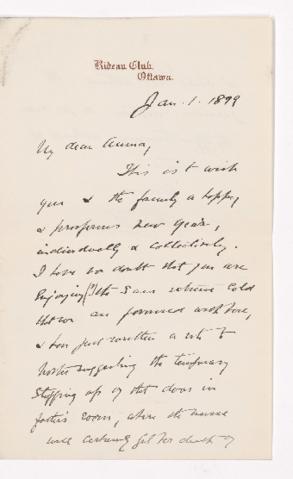 Rideau Club.
Ottawa.
Jan. 1. 1899
My dear Anna,
This is to wish
you & the family a happy
& prosperous new year,
individually & collectively.
I have no doubt that you are
enjoying (?) the same extreme cold
that we are favoured with here,
& have just written a note to
suggesting the temporary
stopping up of that door in
father's room, where the nurse
will certainly get her death of